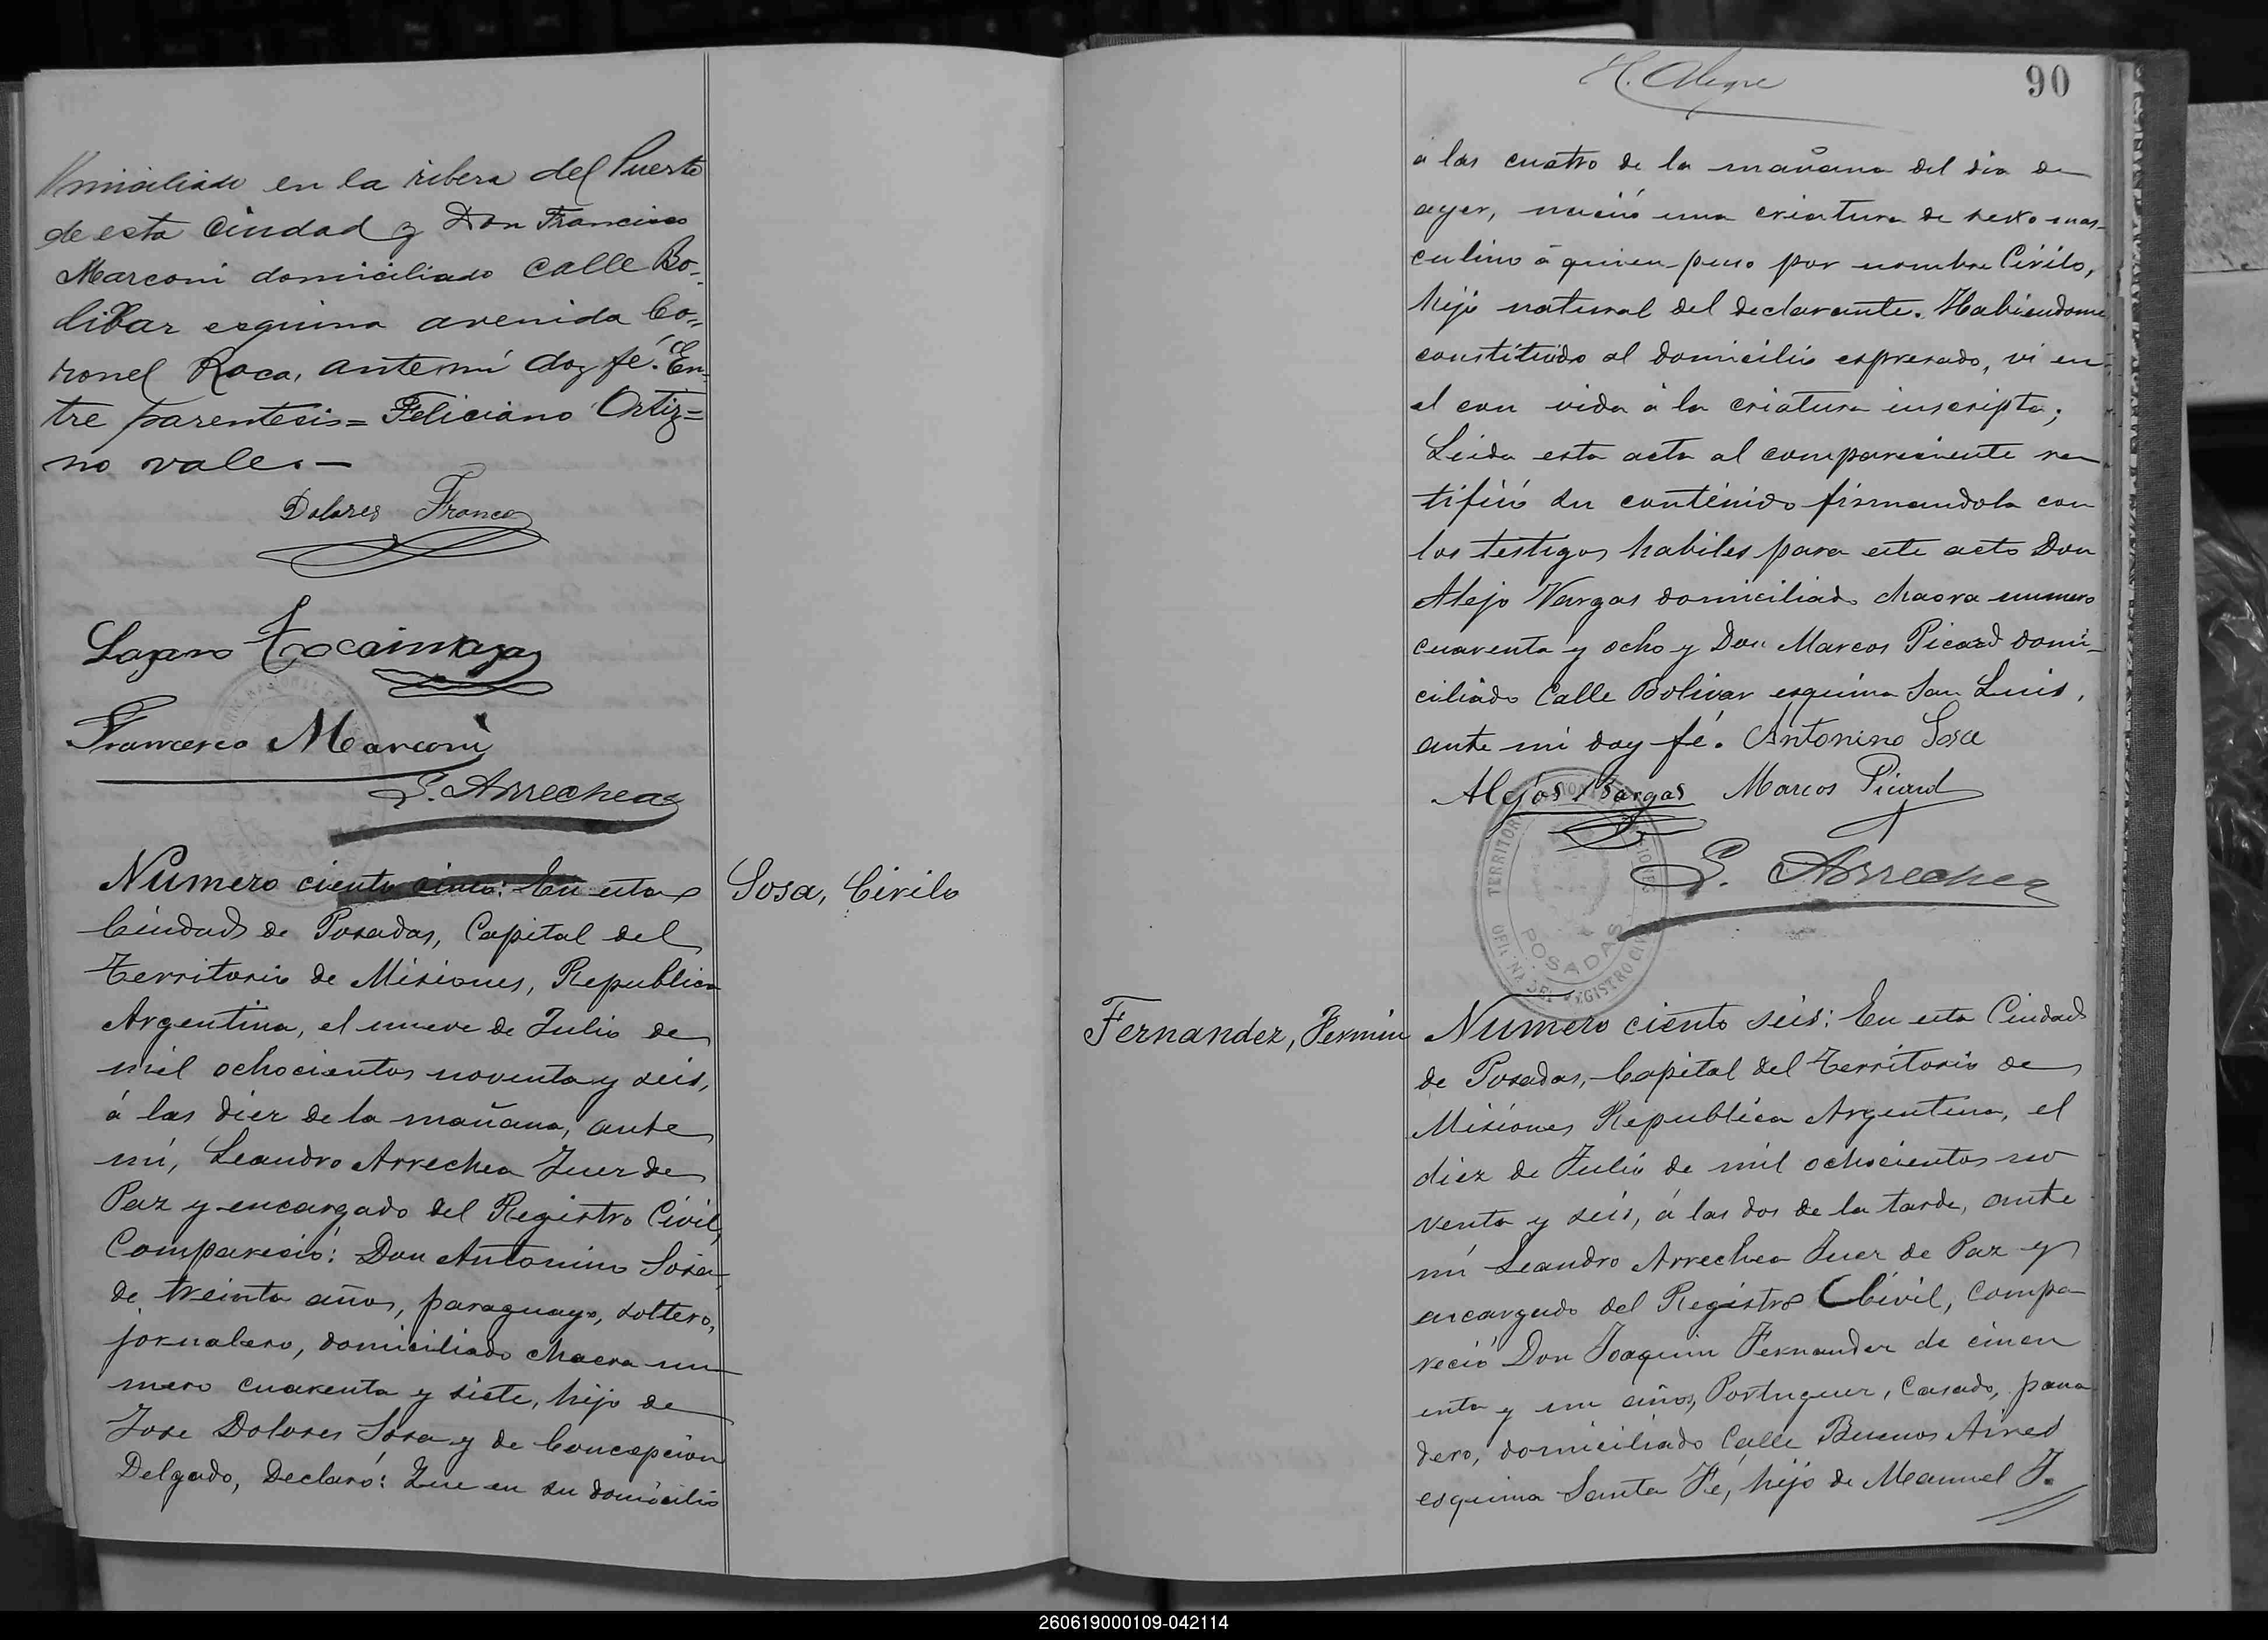 domiciliado en la ribera del Puerto
de esta Ciudad y Don Francisco
Marconi domiciliado Calle Bo-
libar esquina avenida Co-
ronel Roca, ante mí doy fé. En-
tre parentesis= Feliciano Ortiz=
no vale.—
Dolores Franco
Francesco Marconi
L. Arrechea
Numero ciento cinco: En esta
Ciudad de Posadas, Capital del
Territorio de Misiones, Republica
Argentina, el nueve de Julio de
mil ochocientos noventa y seis,
á las diez de la mañana, ante
mí, Leandro Arrechea Juez de
Paz y encargado del Registro Civil,
Compareció: Don Antonino Sosa,
de treinta años, paraguayo, soltero,
jornalero, domiciliado chacra nu
mero cuarenta y siete, hijo de
Jose Dolores Sosa y de Concepcion
Delgado, Declaró: Que en su domicilio
Sosa, Cirilo
90
á las cuatro de la mañana del dia de
ayer, nació una criatura de sexo mas-
culino á quien puso por nombre Cirilo,
hijo natural del declarante. Habiendome
constituido al domicilio espresado, vi en
el con vida á la criatura inscripta;
Leida esta acta al compareciente ra
tificó su contenido firmandola con
los testigos habiles para este acto Don
Alejo Vargas domiciliado chacra numero
cuarenta y ocho y Don Marcos Picard domi-
ciliado Calle Bolivar esquina San Luis,
ante mi doy fé. Antonino Sosa
Alejos Bargas Marcos Picard
L. Arrechea
TERRITORIO NACIONAL DE MISIONES
POSADAS
OFICINA DEL REGISTRO CIVIL
Fernandez, Fermin
Numero ciento seis: En esta Ciudad
de Posadas, Capital del Territorio de
Misiones Republica Argentina, el
diez de Julio de mil ochocientos no
venta y seis, á las dos de la tarde, ante
mí Leandro Arrechea Juez de Paz y
encargado del Registro Civil, Compa
reció Don Joaquin Fernandez de cincu
enta y un años, Portuguez, Casado, pana
dero, domiciliado Calle Buenos Aires
esquina Santa Fé, hijo de Manuel J.
260619000109-042114